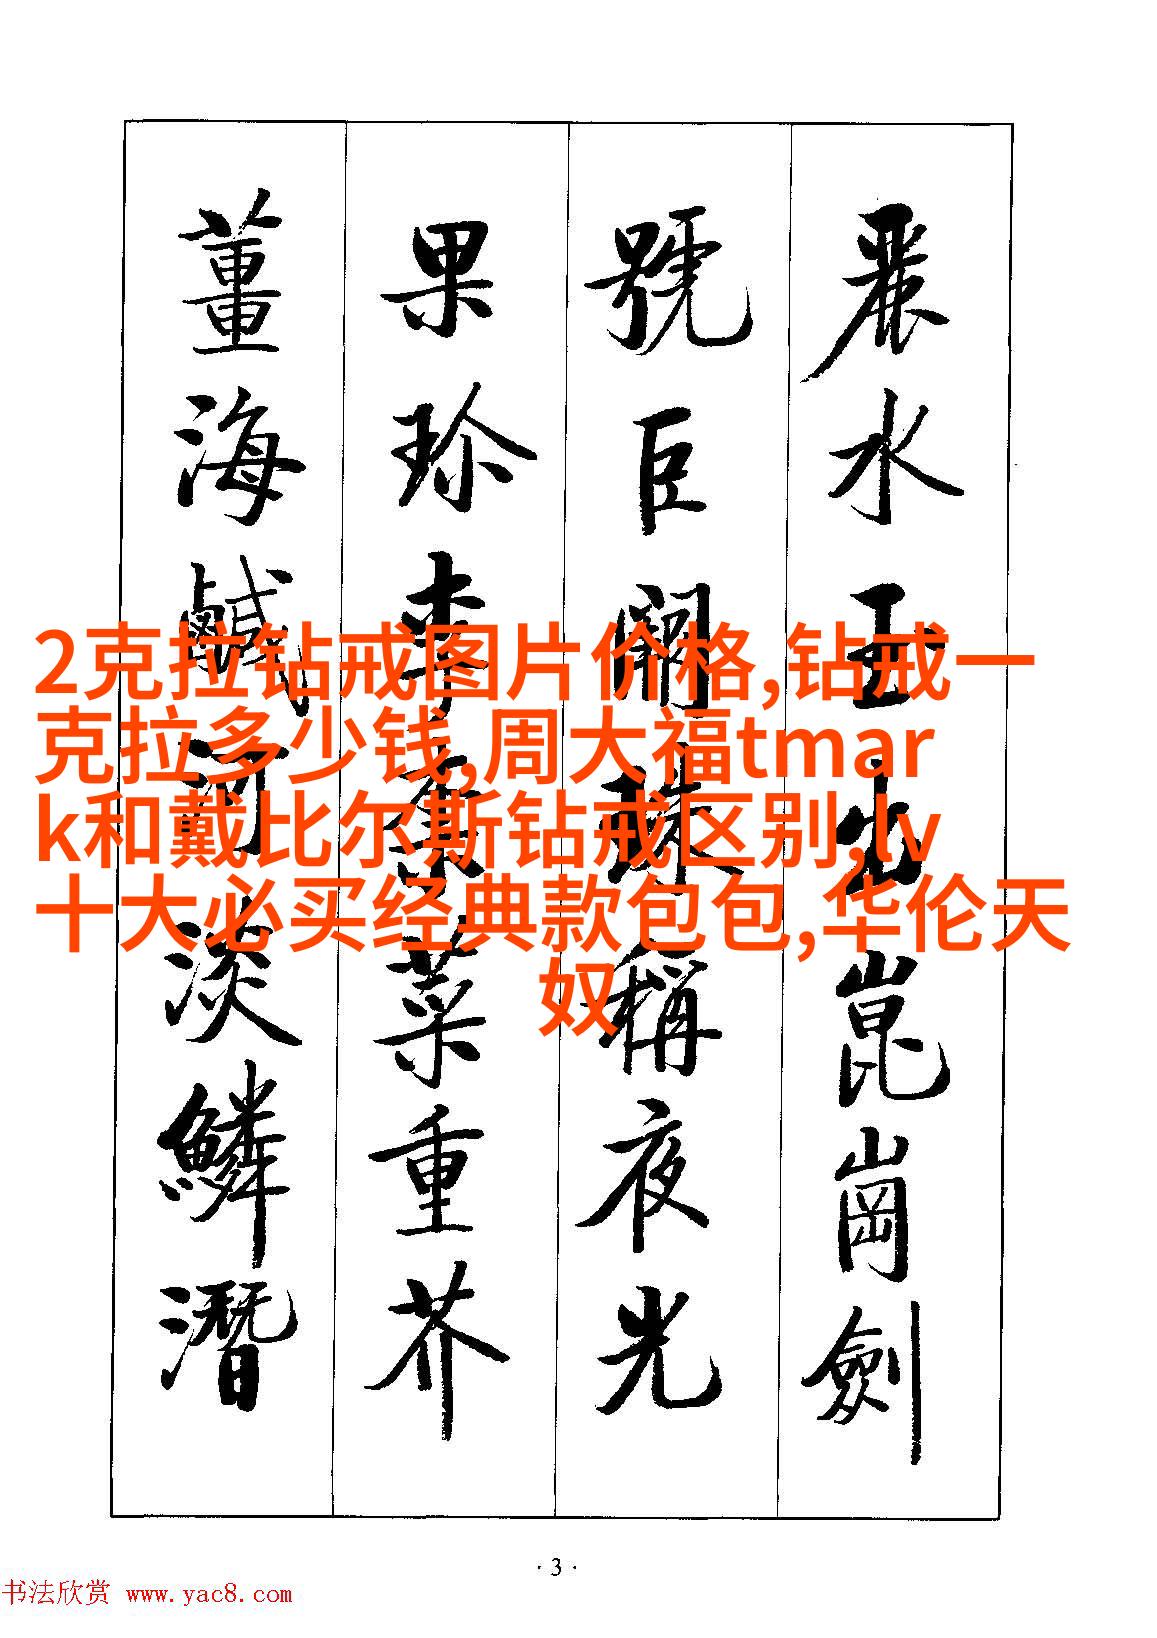 麗水玉出崑崗劍
號巨闕珠稱夜光
果珍李柰菜重芥
薑海鹹河淡鱗潛
2克拉钻戒图片价格,钻戒一
克拉多少钱,周大福tmar
k和戴比尔斯钻戒区别,lv
十大必买经典款包包,华伦天
奴
·3·
书法欣赏 www.yac8.com